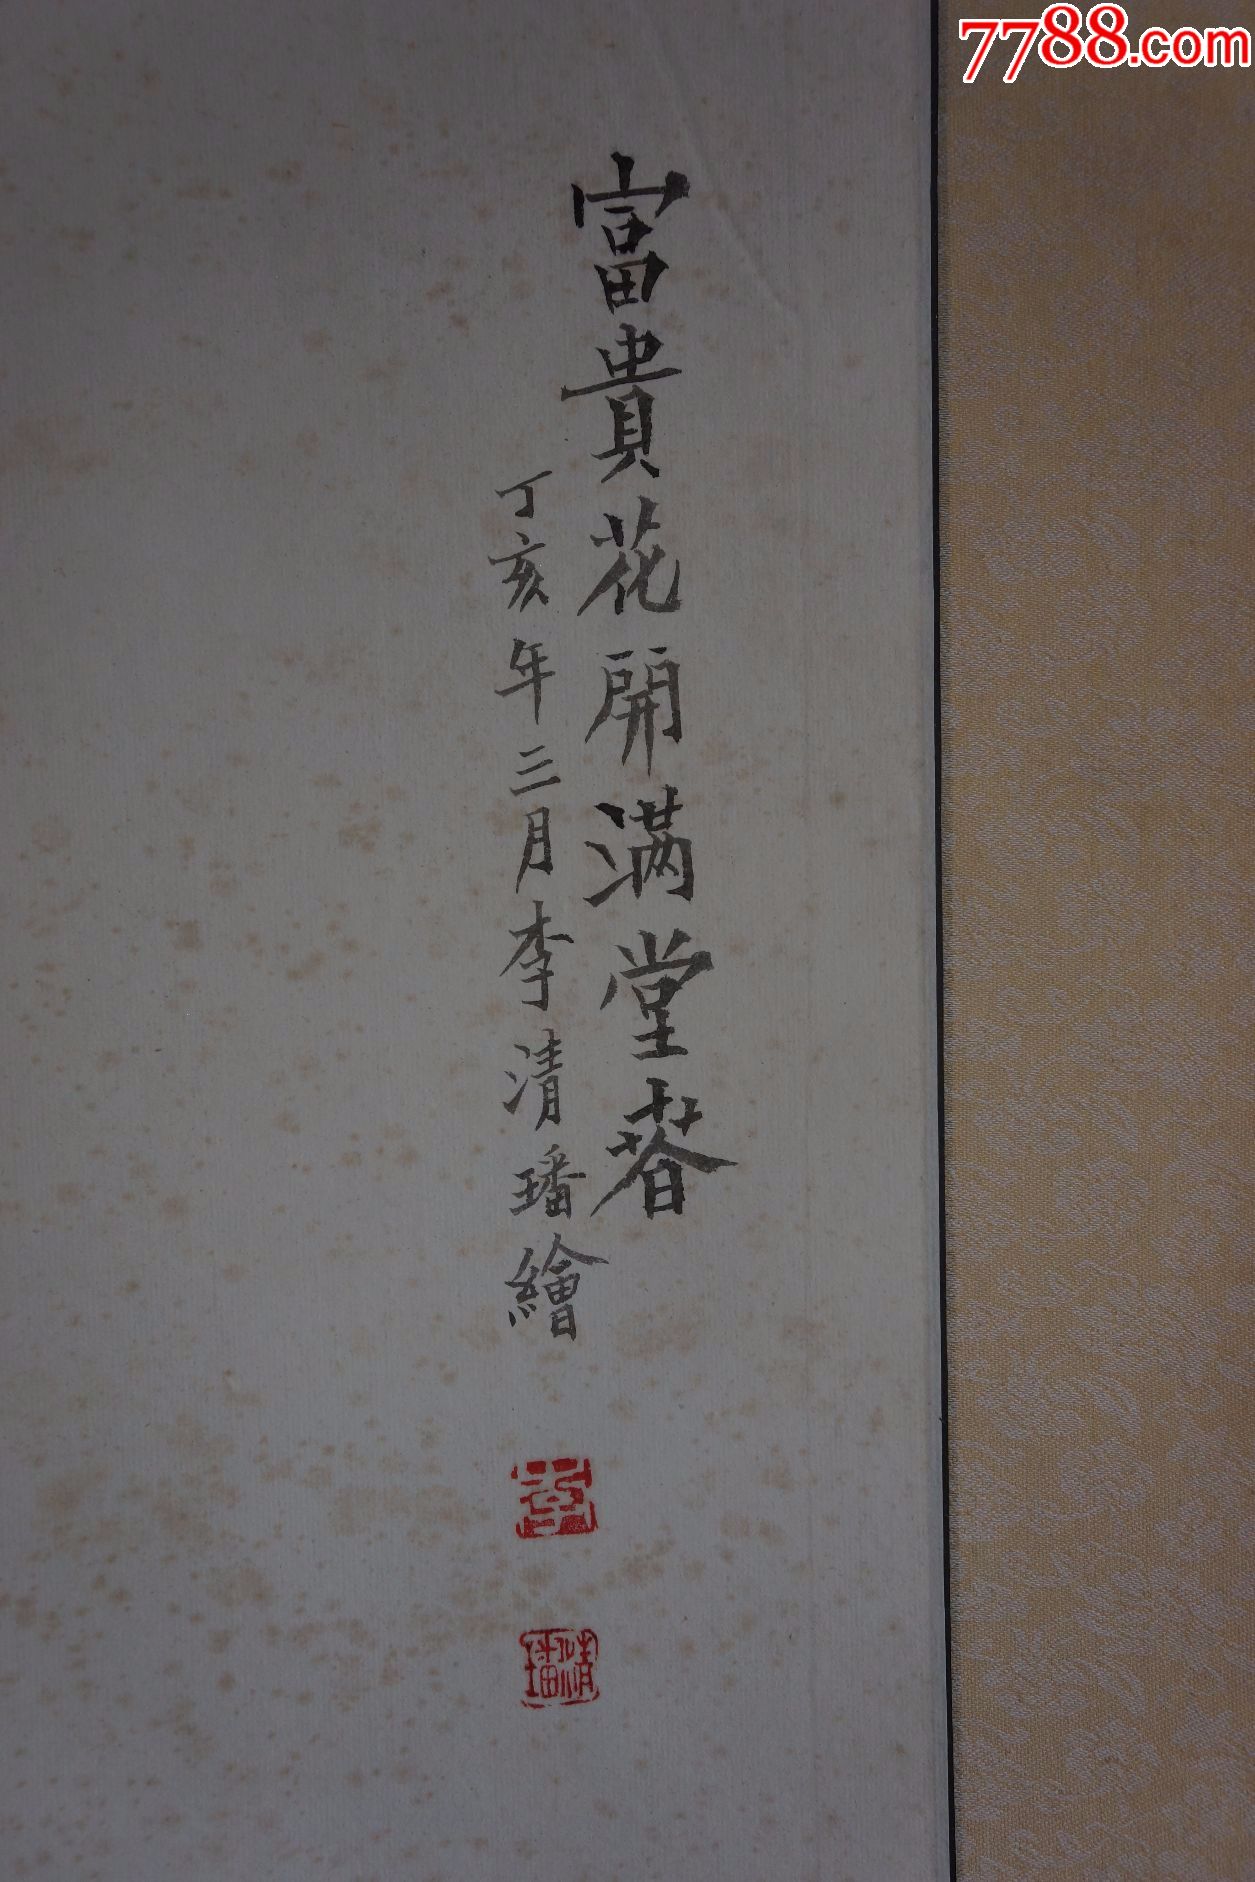 7788.com
富貴花開满堂春
丁亥年三月李清璠繪
清璠